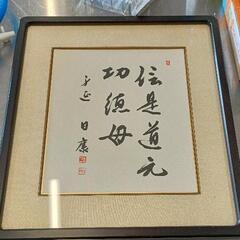 信是道元
功徳母
日廉